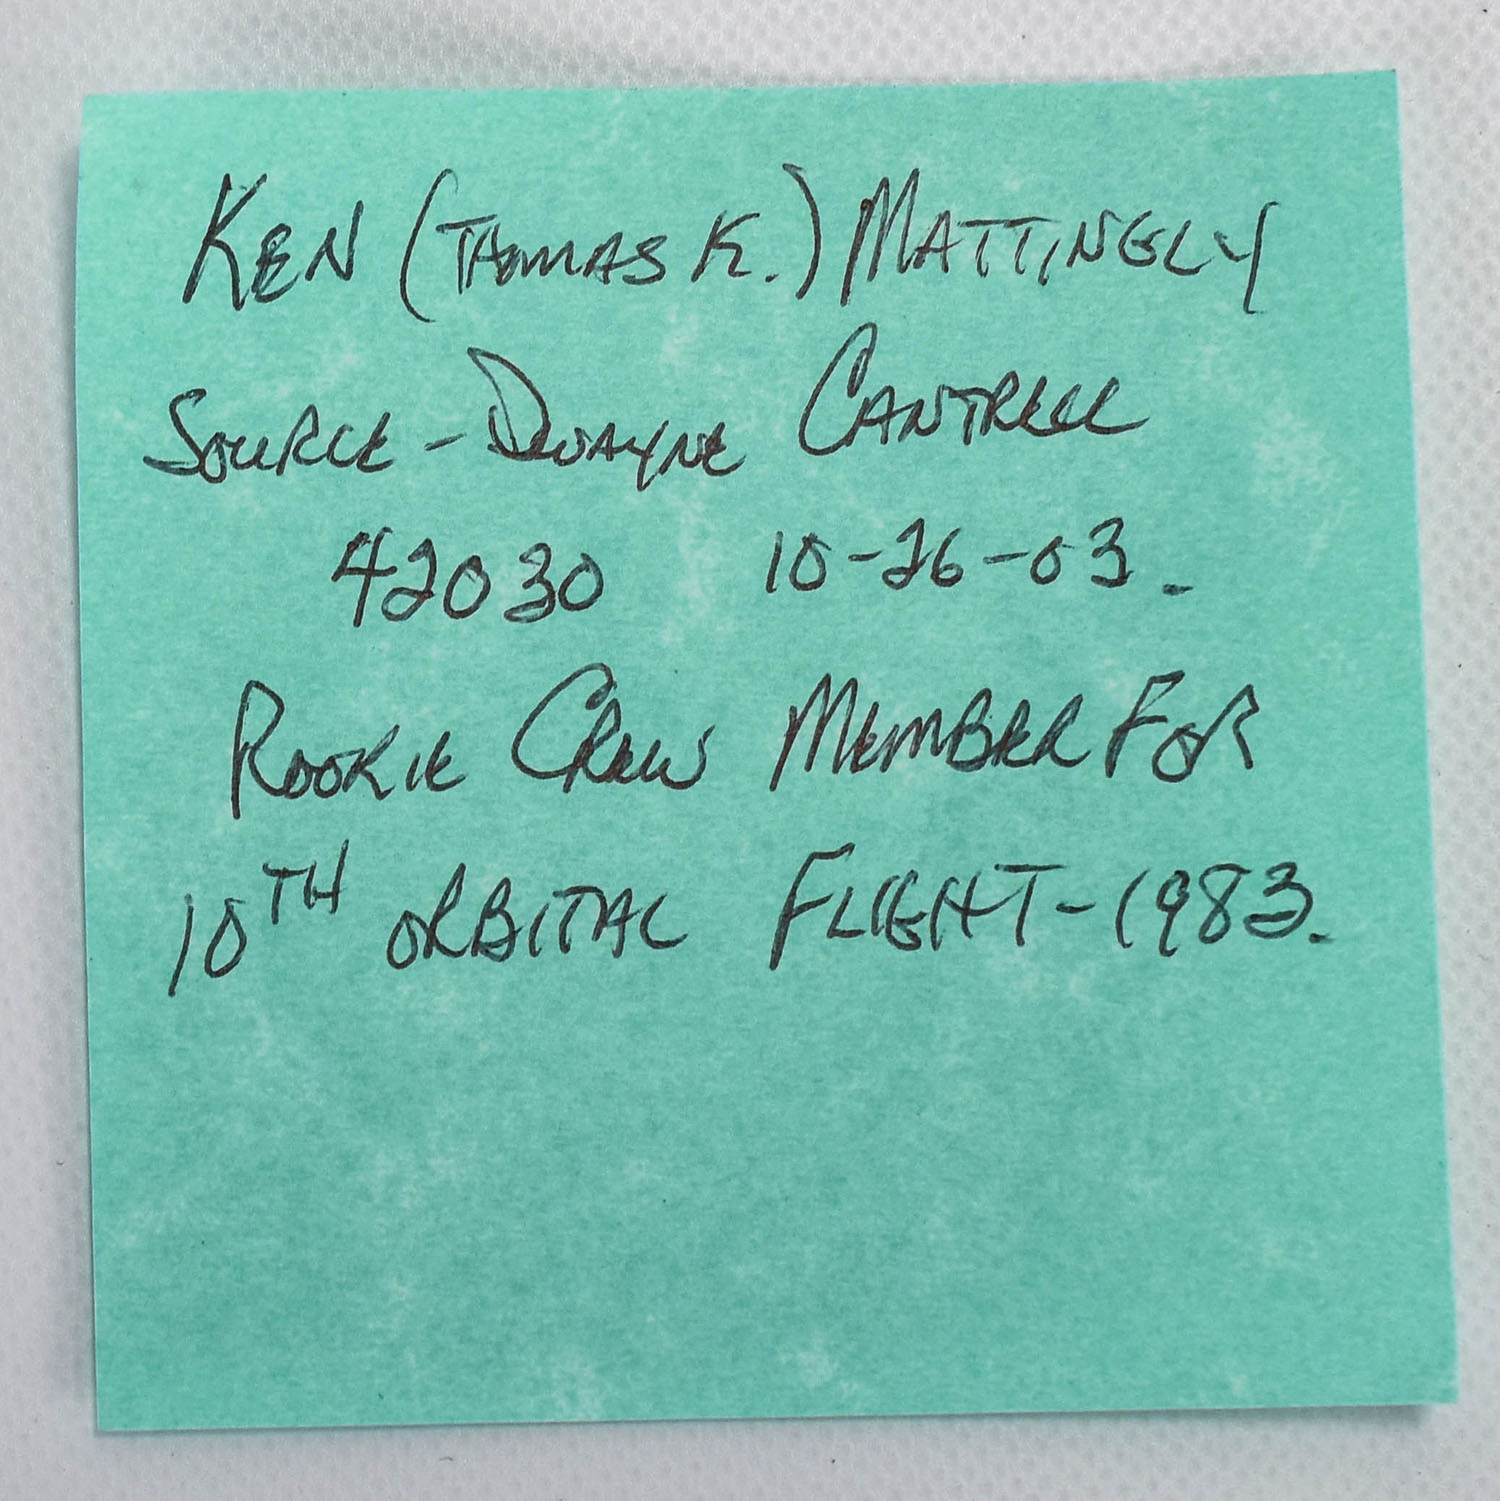 KEN (THOMAS K.) MATTINGLY
SOURCE - DWAYNE CANTRELL
42030 10-26-03.
ROOKIE CREW MEMBER FOR
10TH ORBITAL FLIGHT - 1983.